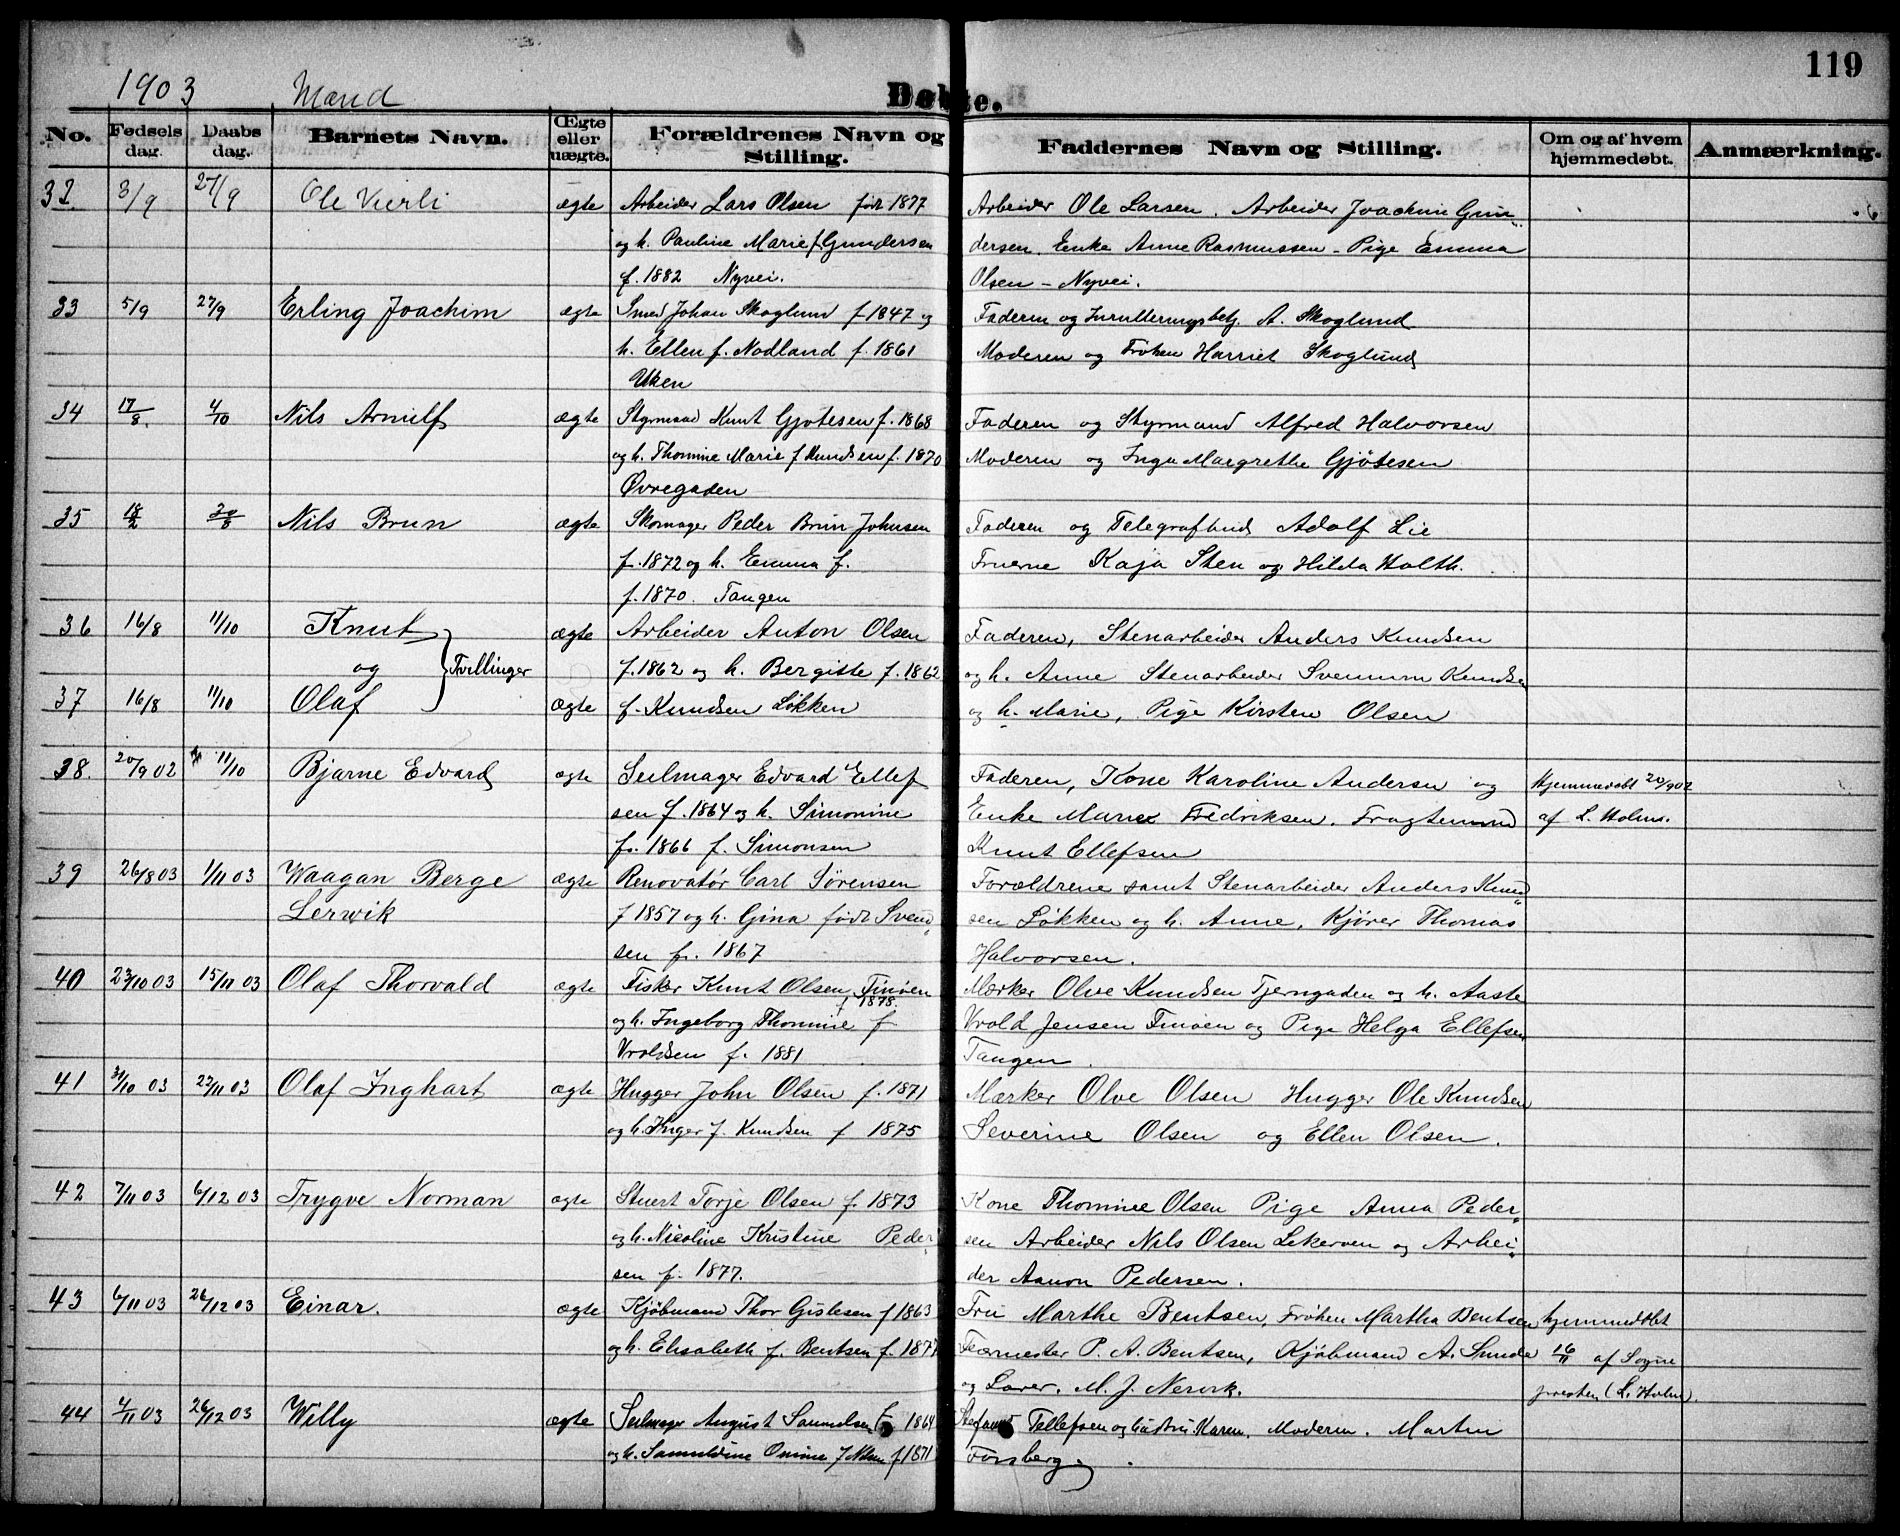 119
1903 Mænd Døbte.
No. Fødsels dag. Daabs dag. Barnets Navn. Ægte eller uægte. Forældrenes Navn og Stilling. Faddernes Navn og Stilling. Om og af hvem hjemmedøbt. Anmærkning.
32 3/9 27/9 Ole Vierli ægte Arbeider Lars Olsen født 1877 Arbeider Ole Larsen. Arbeider Joachim Gun„
og h. Pauline Marie f Gundersen dersen. Enke Anne Rasmussen - Pige Emma
f. 1882 Nyvei. Olsen - Nyvei.
33 5/9 27/9 Erling Joachim ægte Smed Johan Skoglund f 1847 og Faderen og A. Skoglund
h. Ellen f. Nodland f. 1861 Moderen og Frøken Harriet Skoglund
Uken
34 17/8. 4/10 Nils Arnulf ægte Styrmand Knut Gjøtesen f. 1868 Faderen og Styrmand Alfred Halvorsen
og h. Thomine Marie f Knudsen f. 1870 Moderen og Inga Margrethe Gjøtesen
Øvregaden
35 18/2 30/8 Nils Brun ægte Skomager Peder Brun Johnsen Faderen og Telegrafbud Adolf Lie
f. 1872 og h. Emma f. Fruerne Kaja Sten og Hilda Holth.
f. 1870. Tangen
36 16/8 11/10 Knut ægte Arbeider Anton Olsen Faderen, Stenarbeider Anders Knudsen
og Tvillinger f. 1862 og h. Bergitte f. 1862 og h. Anne Stenarbeider Svennum Knudsen
37 16/8 11/10 Olaf ægte f. Knudsen Løkken og h. Marie, Pige Kirsten Olsen
38. 20/9 02 11/10 Bjarne Edvard ægte Seilmager Edvard Ellef Faderen, Kone Karoline Andersen og Hjemmedøbt 20/9 02
sen f. 1864 og h. Simonine Enke Marie Fredriksen. Fragtemand af L. Holm.
f. 1866 f. Simonsen Knut Ellefsen
39 26/8 03 1/11 03 Waagan Berge ægte Renovatør Carl Sørensen Forældrene samt Stenarbeider Anders Knud„
Lerwik f 1857 og h. Gina født Svend„ sen Løkken og h. Anne, Kjører Thomas
sen f. 1867 Halvorsen.
40 23/10 03 15/11 03 Olaf Thorvald ægte Fisker Knut Olsen Tinøen Mærker Olve Knudsen Tjerngaden og h. Aaste
f 1878.
og h. Ingeborg Thomine f Vrold Jensen Tinøen og Pige Helga Ellefsen
Vroldsen f. 1881 Tangen.
41 31/10 03 22/11 03 Olaf Inghart ægte Hugger John Olsen f. 1871 Mærker Olve Olsen Hugger Ole Knudsen
og h. Inger f. Knudsen f 1875 Severine Olsen og Ellen Olsen.
42 7/11 03 6/12 03 Trygve Norman ægte Stuert Torje Olsen f. 1873 Kone Thomine Olsen Pige Anna Peder„
og h. Nicoline Kristine Peder„ sen Arbeider Nils Olsen Lekerven og Arbei„
sen f. 1877. der Aanon Pedersen.
43 6/11 03 26/12 03 Einar. ægte Kjøbmand Thor Gislesen f 1863 Fru Marthe Bentsen, Frøken Martha Bentsen hjemmedøbt
og h. Elisabeth f. Bentsen f. 1877 P. A. Bentsen, Kjøbmand A. Sunde 16/11 af Sogne
og M. J. Nervik. presten (L. Holm).
44 4/11 03 26/12 03 Willy ægte Seilmager August Samuelsen f. 1864 Tellefsen og Karen. Moderen. Martin
og h. Samueline f 1871 Forsberg.